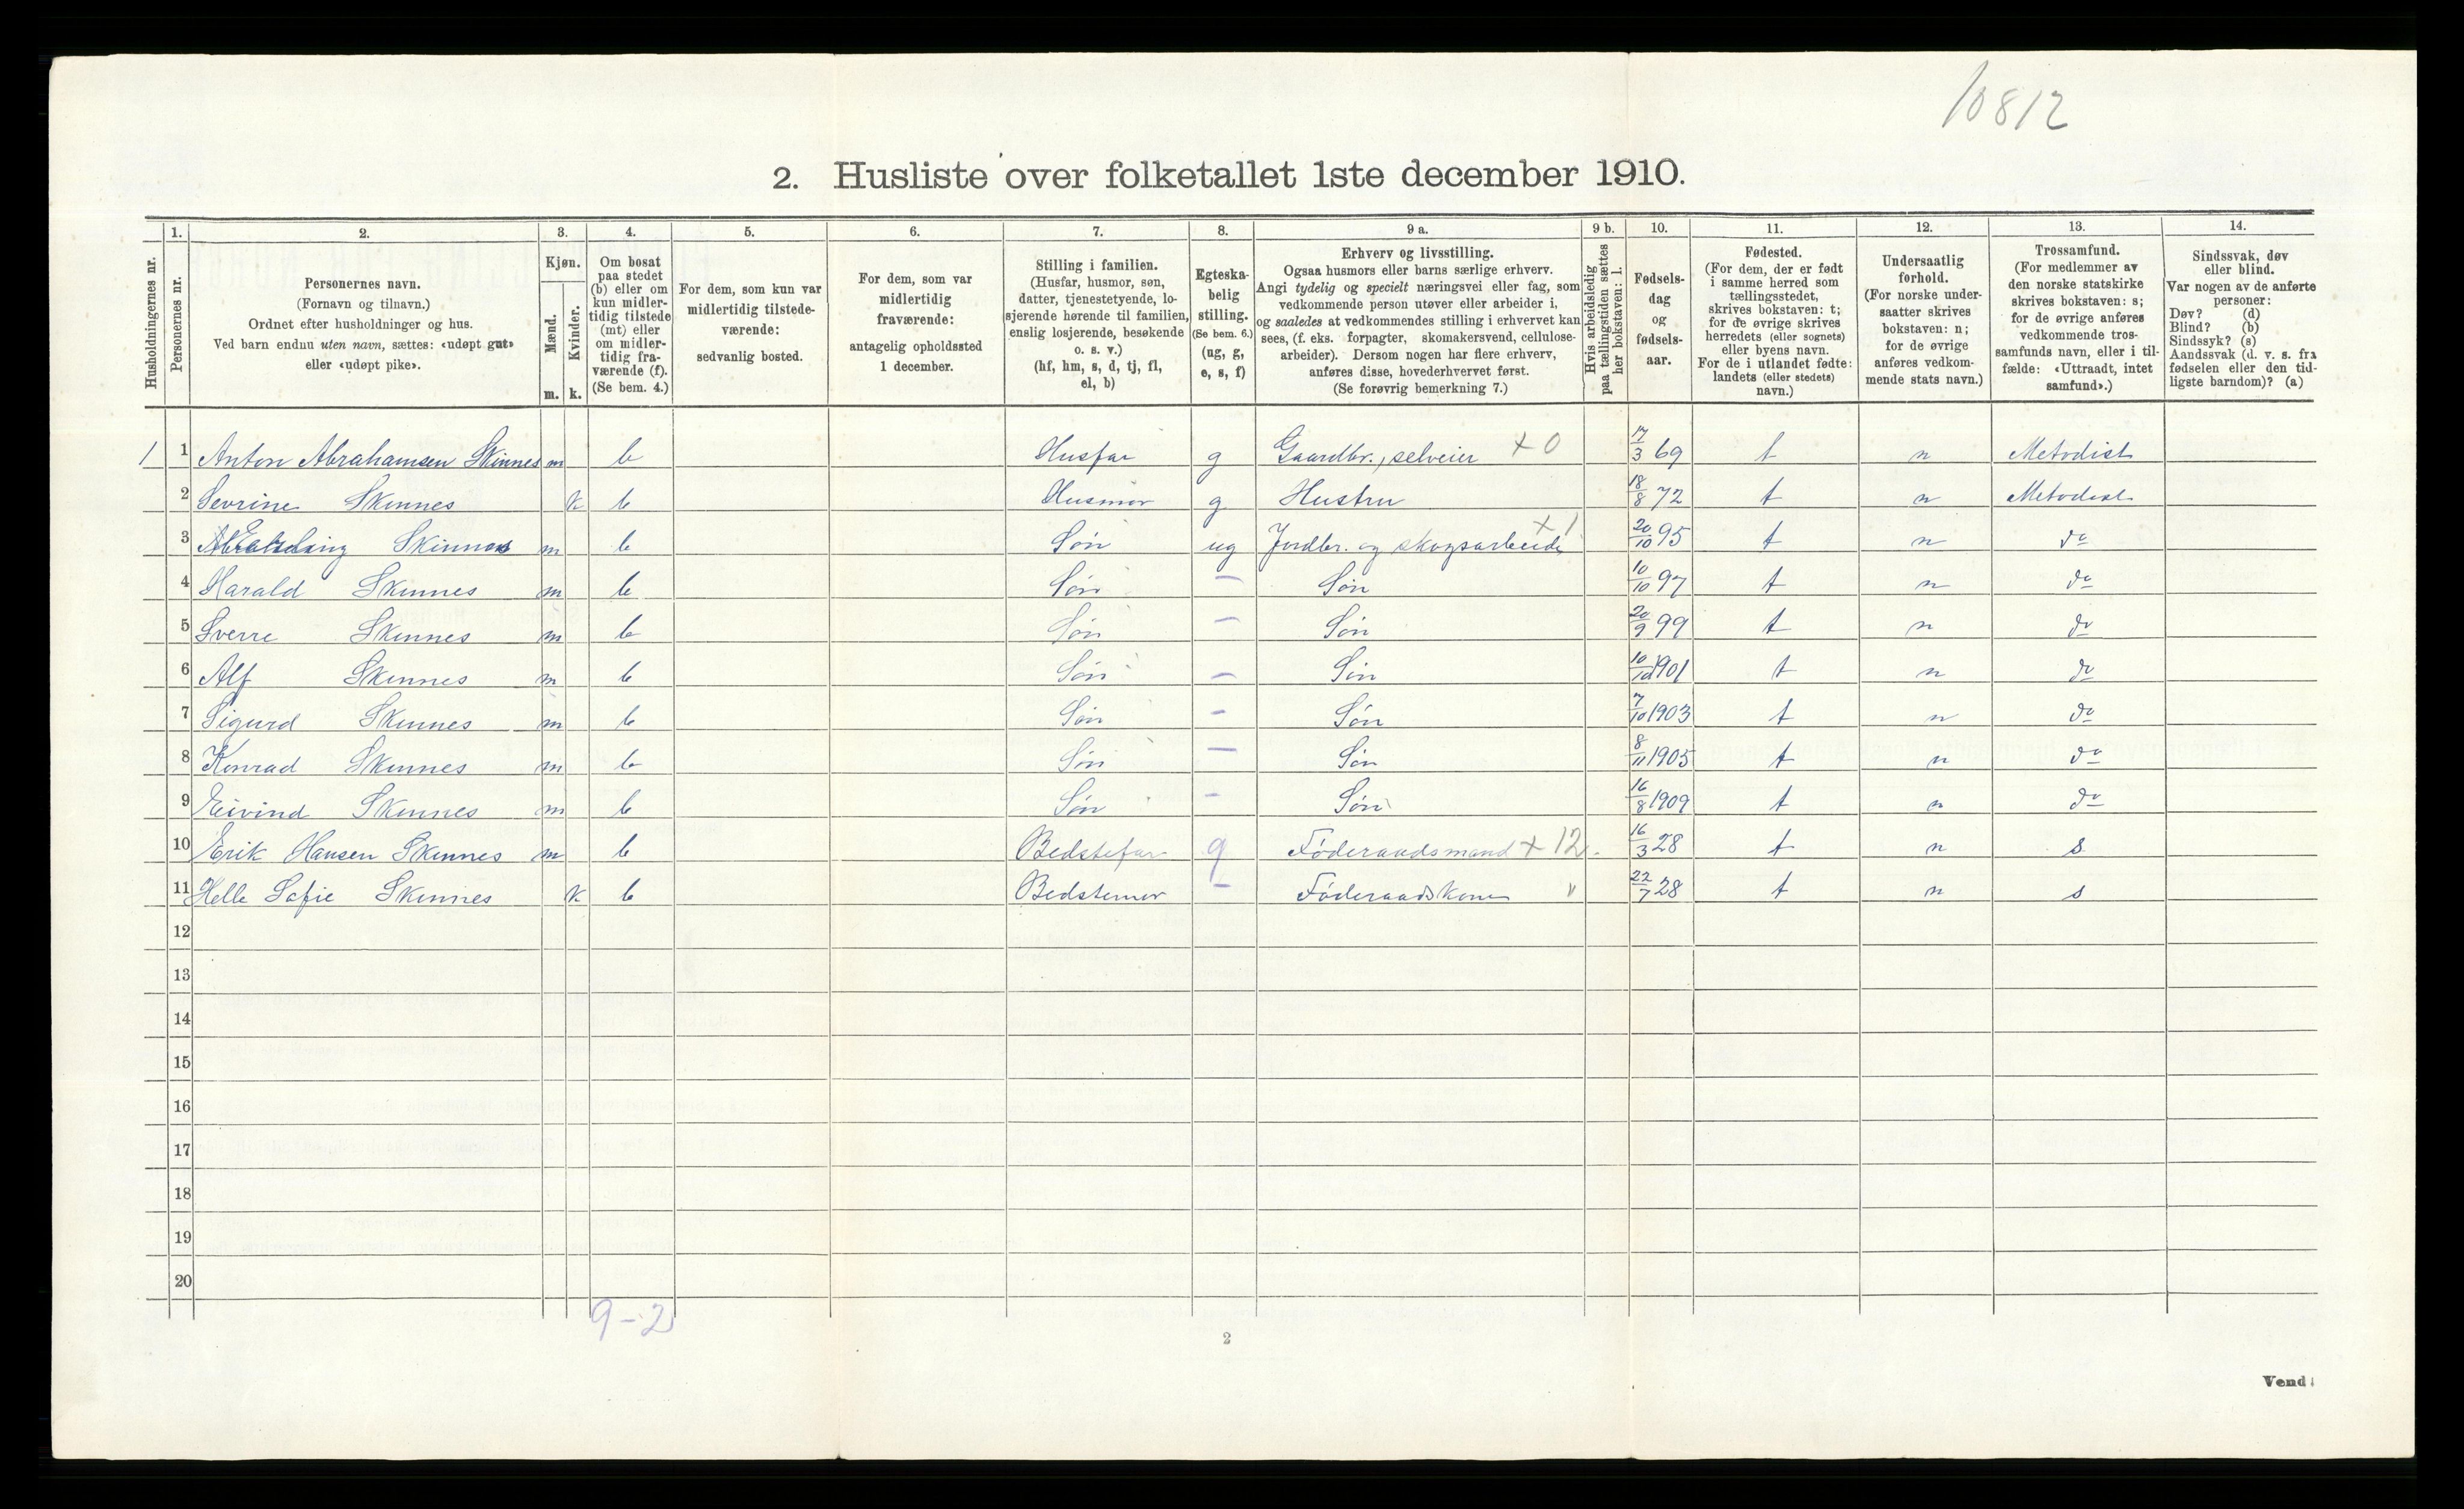 10812
2. Husliste over folketallet 1ste december 1910.
Husholdningernes nr.
1. Personernes nr.
2. Personernes navn.
(Fornavn og tilnavn.)
Ordnet efter husholdninger og hus.
Ved barn endnu uten navn, sættes: «udøpt gut»
eller «udøpt pike».
3. Kjøn.
Mænd. m.
Kvinder. k.
4. Om bosat
paa stedet
(b) eller om
kun midler-
tidig tilstede
(mt) eller
om midler-
tidig fra-
værende (f).
(Se bem. 4.)
5. For dem, som kun var
midlertidig tilstede-
værende:
sedvanlig bosted.
6. For dem, som var
midlertidig
fraværende:
antagelig opholdssted
1 december.
7. Stilling i familien.
(Husfar, husmor, søn,
datter, tjenestetyende, lo-
sjerende hørende til familien,
enslig losjerende, besøkende
o. s. v.)
(hf, hm, s, d, tj, fl,
el, b)
8. Egteska-
belig
stilling.
(Se bem. 6.)
(ug, g,
e, s, f)
9 a. Erhverv og livsstilling.
Ogsaa husmors eller barns særlige erhverv.
Angi tydelig og specielt næringsvei eller fag, som
vedkommende person utøver eller arbeider i,
og saaledes at vedkommendes stilling i erhvervet kan
sees, (f. eks. forpagter, skomakersvend, cellulose-
arbeider). Dersom nogen har flere erhverv,
anføres disse, hovederhvervet først.
(Se forøvrig bemerkning 7.)
9 b. Hvis arbeidsledig
paa tællingstiden sættes
her bokstaven: l.
10. Fødsels-
dag
og
fødsels-
aar.
11. Fødested.
(For dem, der er født
i samme herred som
tællingsstedet,
skrives bokstaven: t;
for de øvrige skrives
herredets (eller sognets)
eller byens navn.
For de i utlandet fødte:
landets (eller stedets)
navn.)
12. Undersaatlig
forhold.
(For norske under-
saatter skrives
bokstaven: n;
for de øvrige
anføres vedkom-
mende stats navn.)
13. Trossamfund.
(For medlemmer av
den norske statskirke
skrives bokstaven: s;
for de øvrige anføres
vedkommende tros-
samfunds navn, eller i til-
fælde: «Uttraadt, intet
samfund».)
14. Sindssvak, døv
eller blind.
Var nogen av de anførte
personer:
Døv? (d)
Blind? (b)
Sindssyk? (s)
Aandssvak (d. v. s. fra
fødselen eller den tid-
ligste barndom)? (a)
1 1 Anton Abrahamsen Skinnes m b Husfar g Gaardbr., selveier +0 17/3 69 t n Metodist
2 Sevrine Skinnes k b Husmor g Hustru 18/8 72 t n Metodist
3 Skinnes m b Søn ug Jordbr. og skogsarbeide +1 20/10 95 t n do
4 Harald Skinnes m b Søn – Søn 10/10 97 t n do
5 Sverre Skinnes m b Søn – Søn 20/9 99 t n do
6 Alf Skinnes m b Søn – Søn 10/10 1901 t n do
7 Sigurd Skinnes m b Søn – Søn 7/10 1903 t n do
8 Konrad Skinnes m b Søn – Søn 8/11 1905 t n do
9 Eivind Skinnes m b Søn – Søn 16/8 1909 t n do
10 Erik Hansen Skinnes m b Bedstefar g Føderaadsmand +12. 16/3 28 t n s
11 Helle Sofie Skinnes k b Bedstemor – Føderaadskone 22/7 28 t n s
12
13
14
15
16
17
18
19
20
9-2
2
Vend!